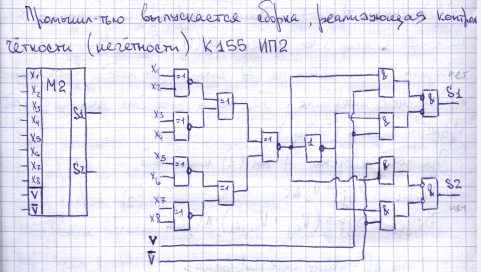 Промышл-тью выпускается сборка, реализующая контрол
чётности (нечётности) К155 ИП2
X1 M2
X2
X3 S1
X4
X5
X6 S2
X7
X8
V
V̅
X1 =1
X2
X3 =1
X4
=1
X5 =1
X6
X7 =1
X8
=1
=1
1
& чёт
& & S1
&
& & S2
V
V̅